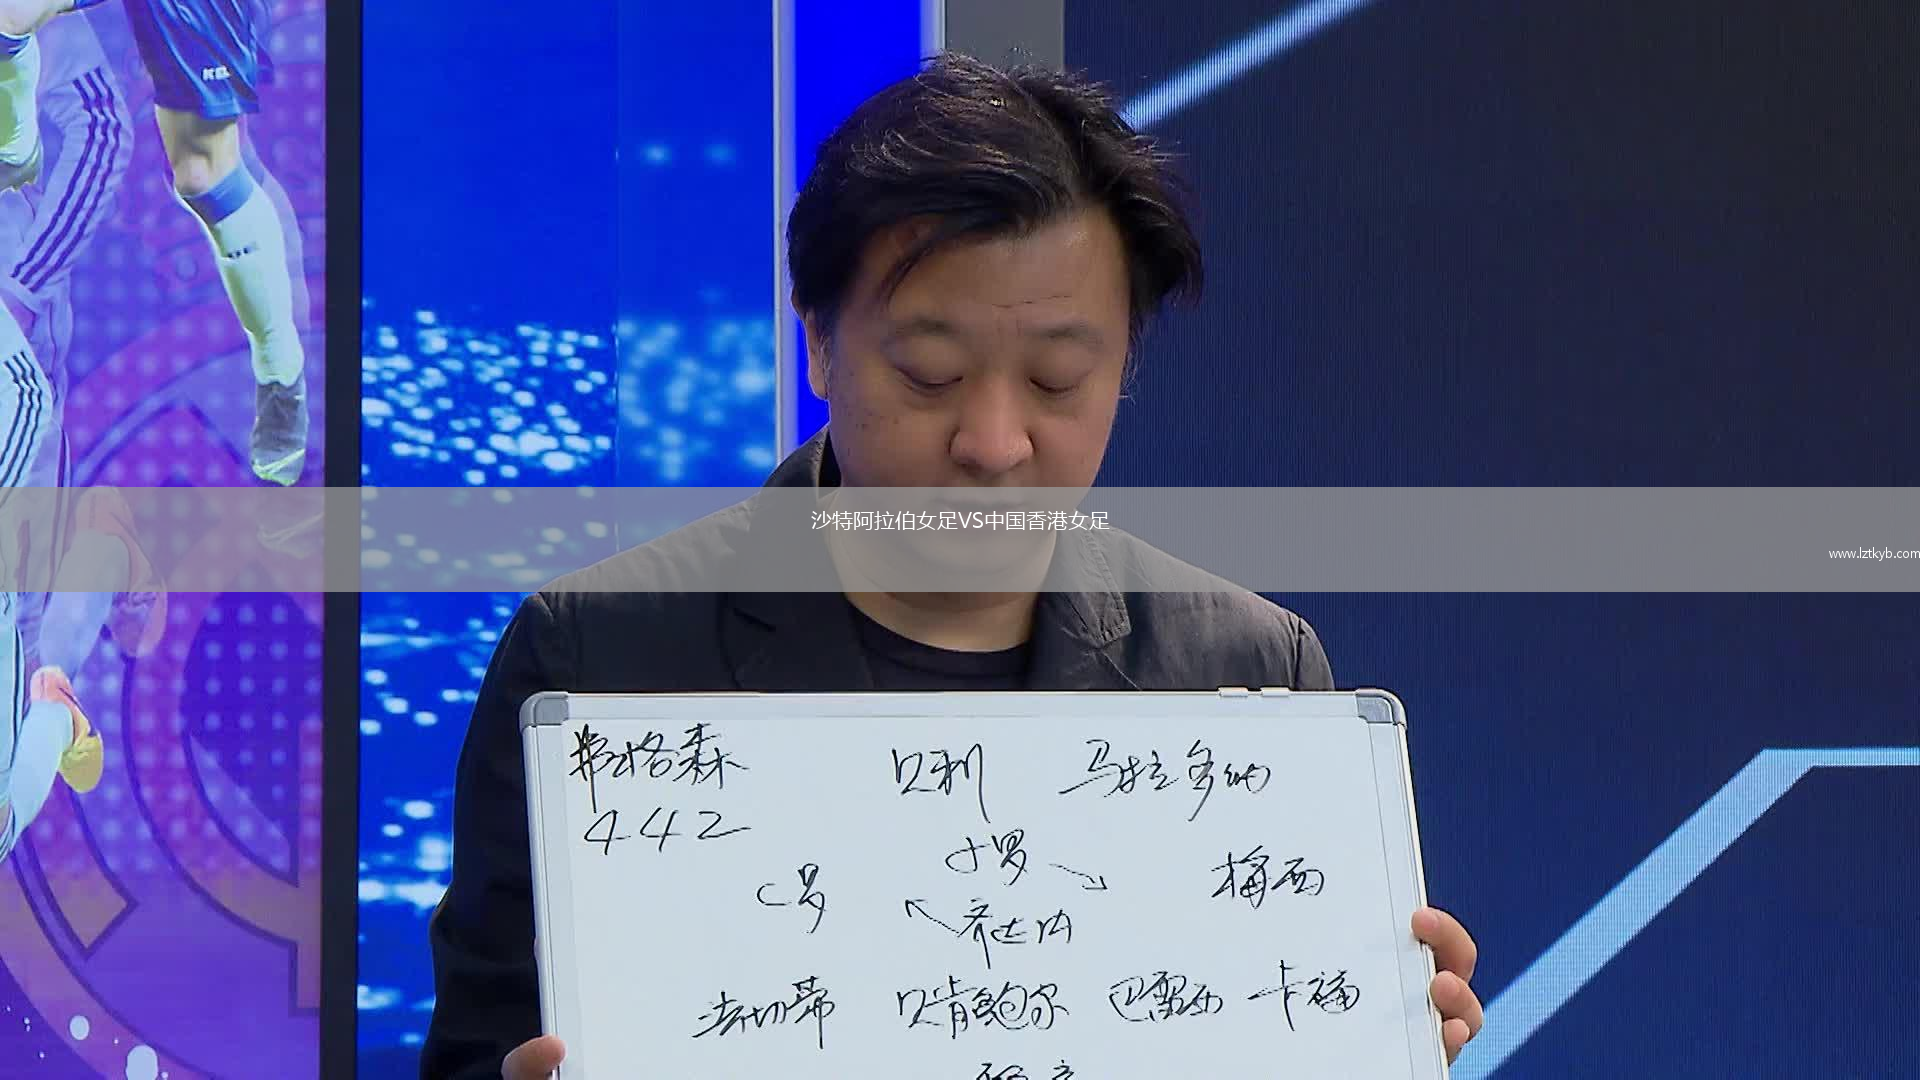 KEL
沙特阿拉伯女足VS中国香港女足
www.lztkyb.com
弗格森 贝利 马拉多纳
442
小罗
C罗 梅西
齐达内
法切蒂 贝肯鲍尔 巴雷西 卡福